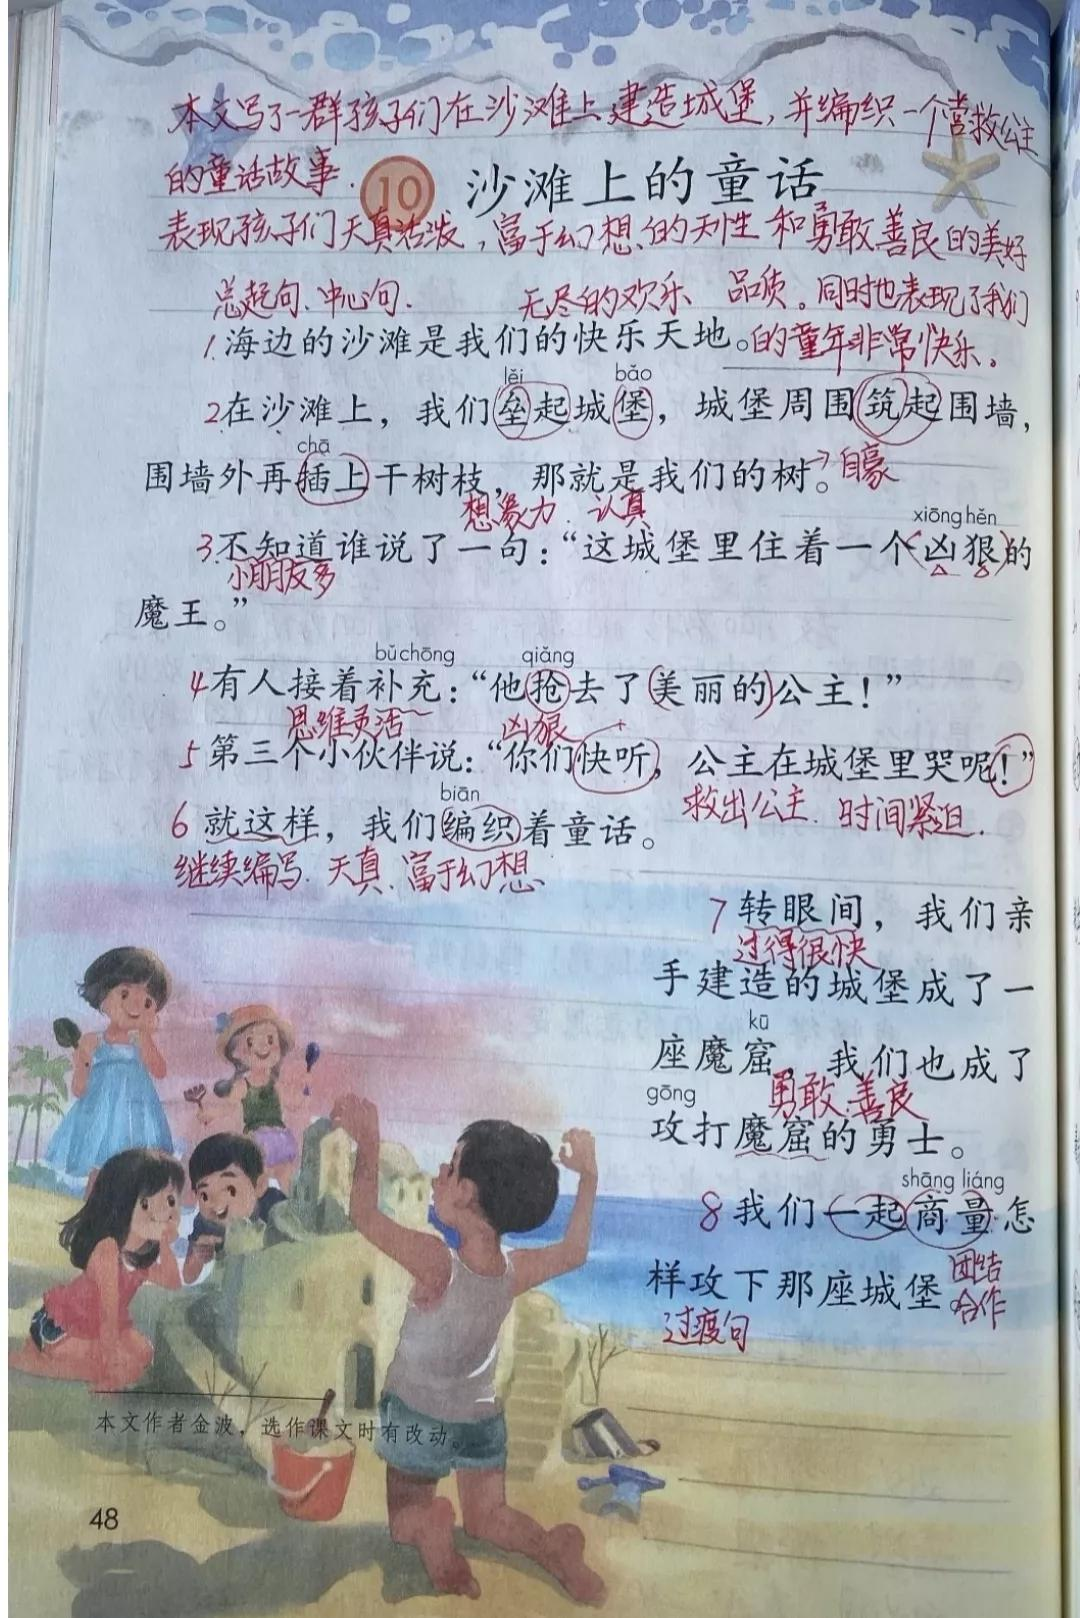 本文写了一群孩子们在沙滩上建造城堡，并编织一个营救公主
的童话故事.
10 沙滩上的童话
表现孩子们天真活泼，富于幻想的天性和勇敢善良的美好
总起句、中心句. 无尽的欢乐 品质。同时也表现了我们
1.海边的沙滩是我们的快乐天地。的童年非常快乐。
lěi bǎo
2在沙滩上，我们垒起城堡，城堡周围筑起围墙，
chā
围墙外再插上干树枝，那就是我们的树。→自豪
想象力. 认真
xiōng hěn
3.不知道谁说了一句：“这城堡里住着一个(凶狠)的
小朋友多
魔王。”
bǔ chōng qiǎng
4有人接着补充：“他抢去了(美丽的)公主！”
思维灵活 凶狠
5第三个小伙伴说：“你们快听，公主在城堡里哭呢！”
救出公主. 时间紧迫.
biān
6就这样，我们编织着童话。
继续编写. 天真. 富于幻想.
7转眼间，我们亲
过得很快
手建造的城堡成了一
kū
座魔窟，我们也成了
gōng 勇敢.善良
攻打魔窟的勇士。
shāng liáng
8我们一起商量怎
样攻下那座城堡 团结
合作
过渡句
本文作者金波，选作课文时有改动。
48